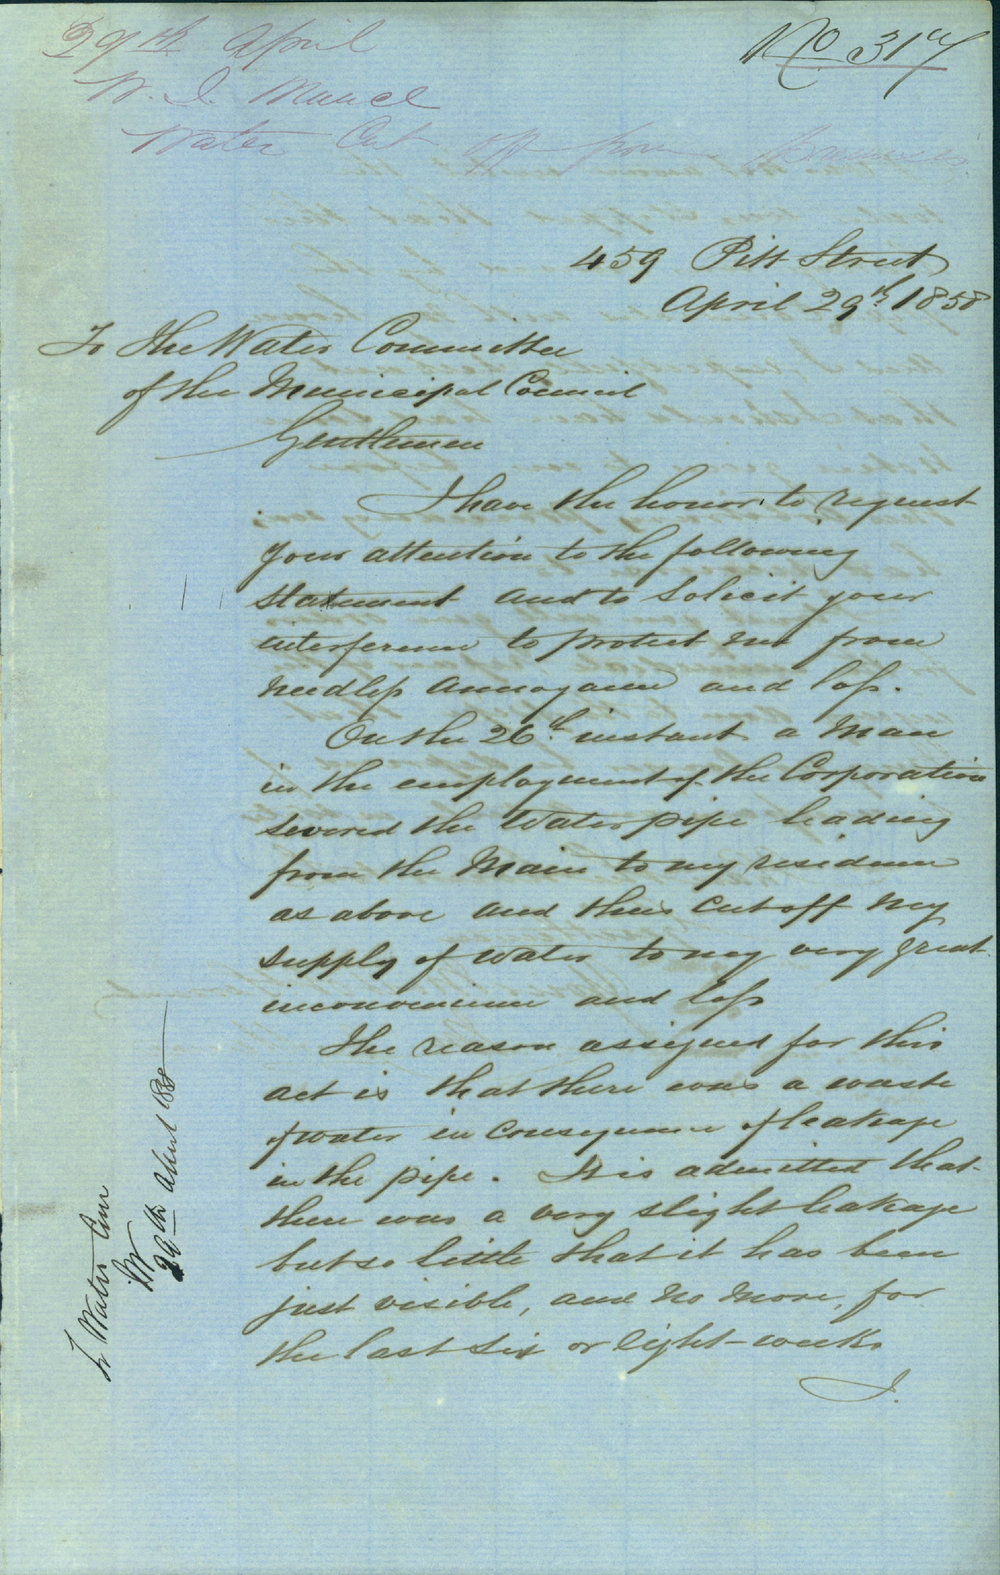 29th April
No 317
W. J.
Water Cut off from
459 Pitt Street
April 29th 1858
To The Water Committee
of the Municipal Council
Gentlemen
I have the honor to request
your attention to the following
statement and to solicit your
interference to protect me from
needless annoyance and loss.
On the 26th instant a Man
in the employment of the Corporation
severed the Water pipe leading
from the Main to my residence
as above and thus cut off my
supply of water to my very great
inconvenience and loss
The reason assigned for this
act is that there was a waste
of water in consequence of leakage
in the pipe. It is admitted that
there was a very slight leakage
but so little that it has been
just visible, and no more, for
the last six or eight weeks
I.
To Water Com
29th April 1858